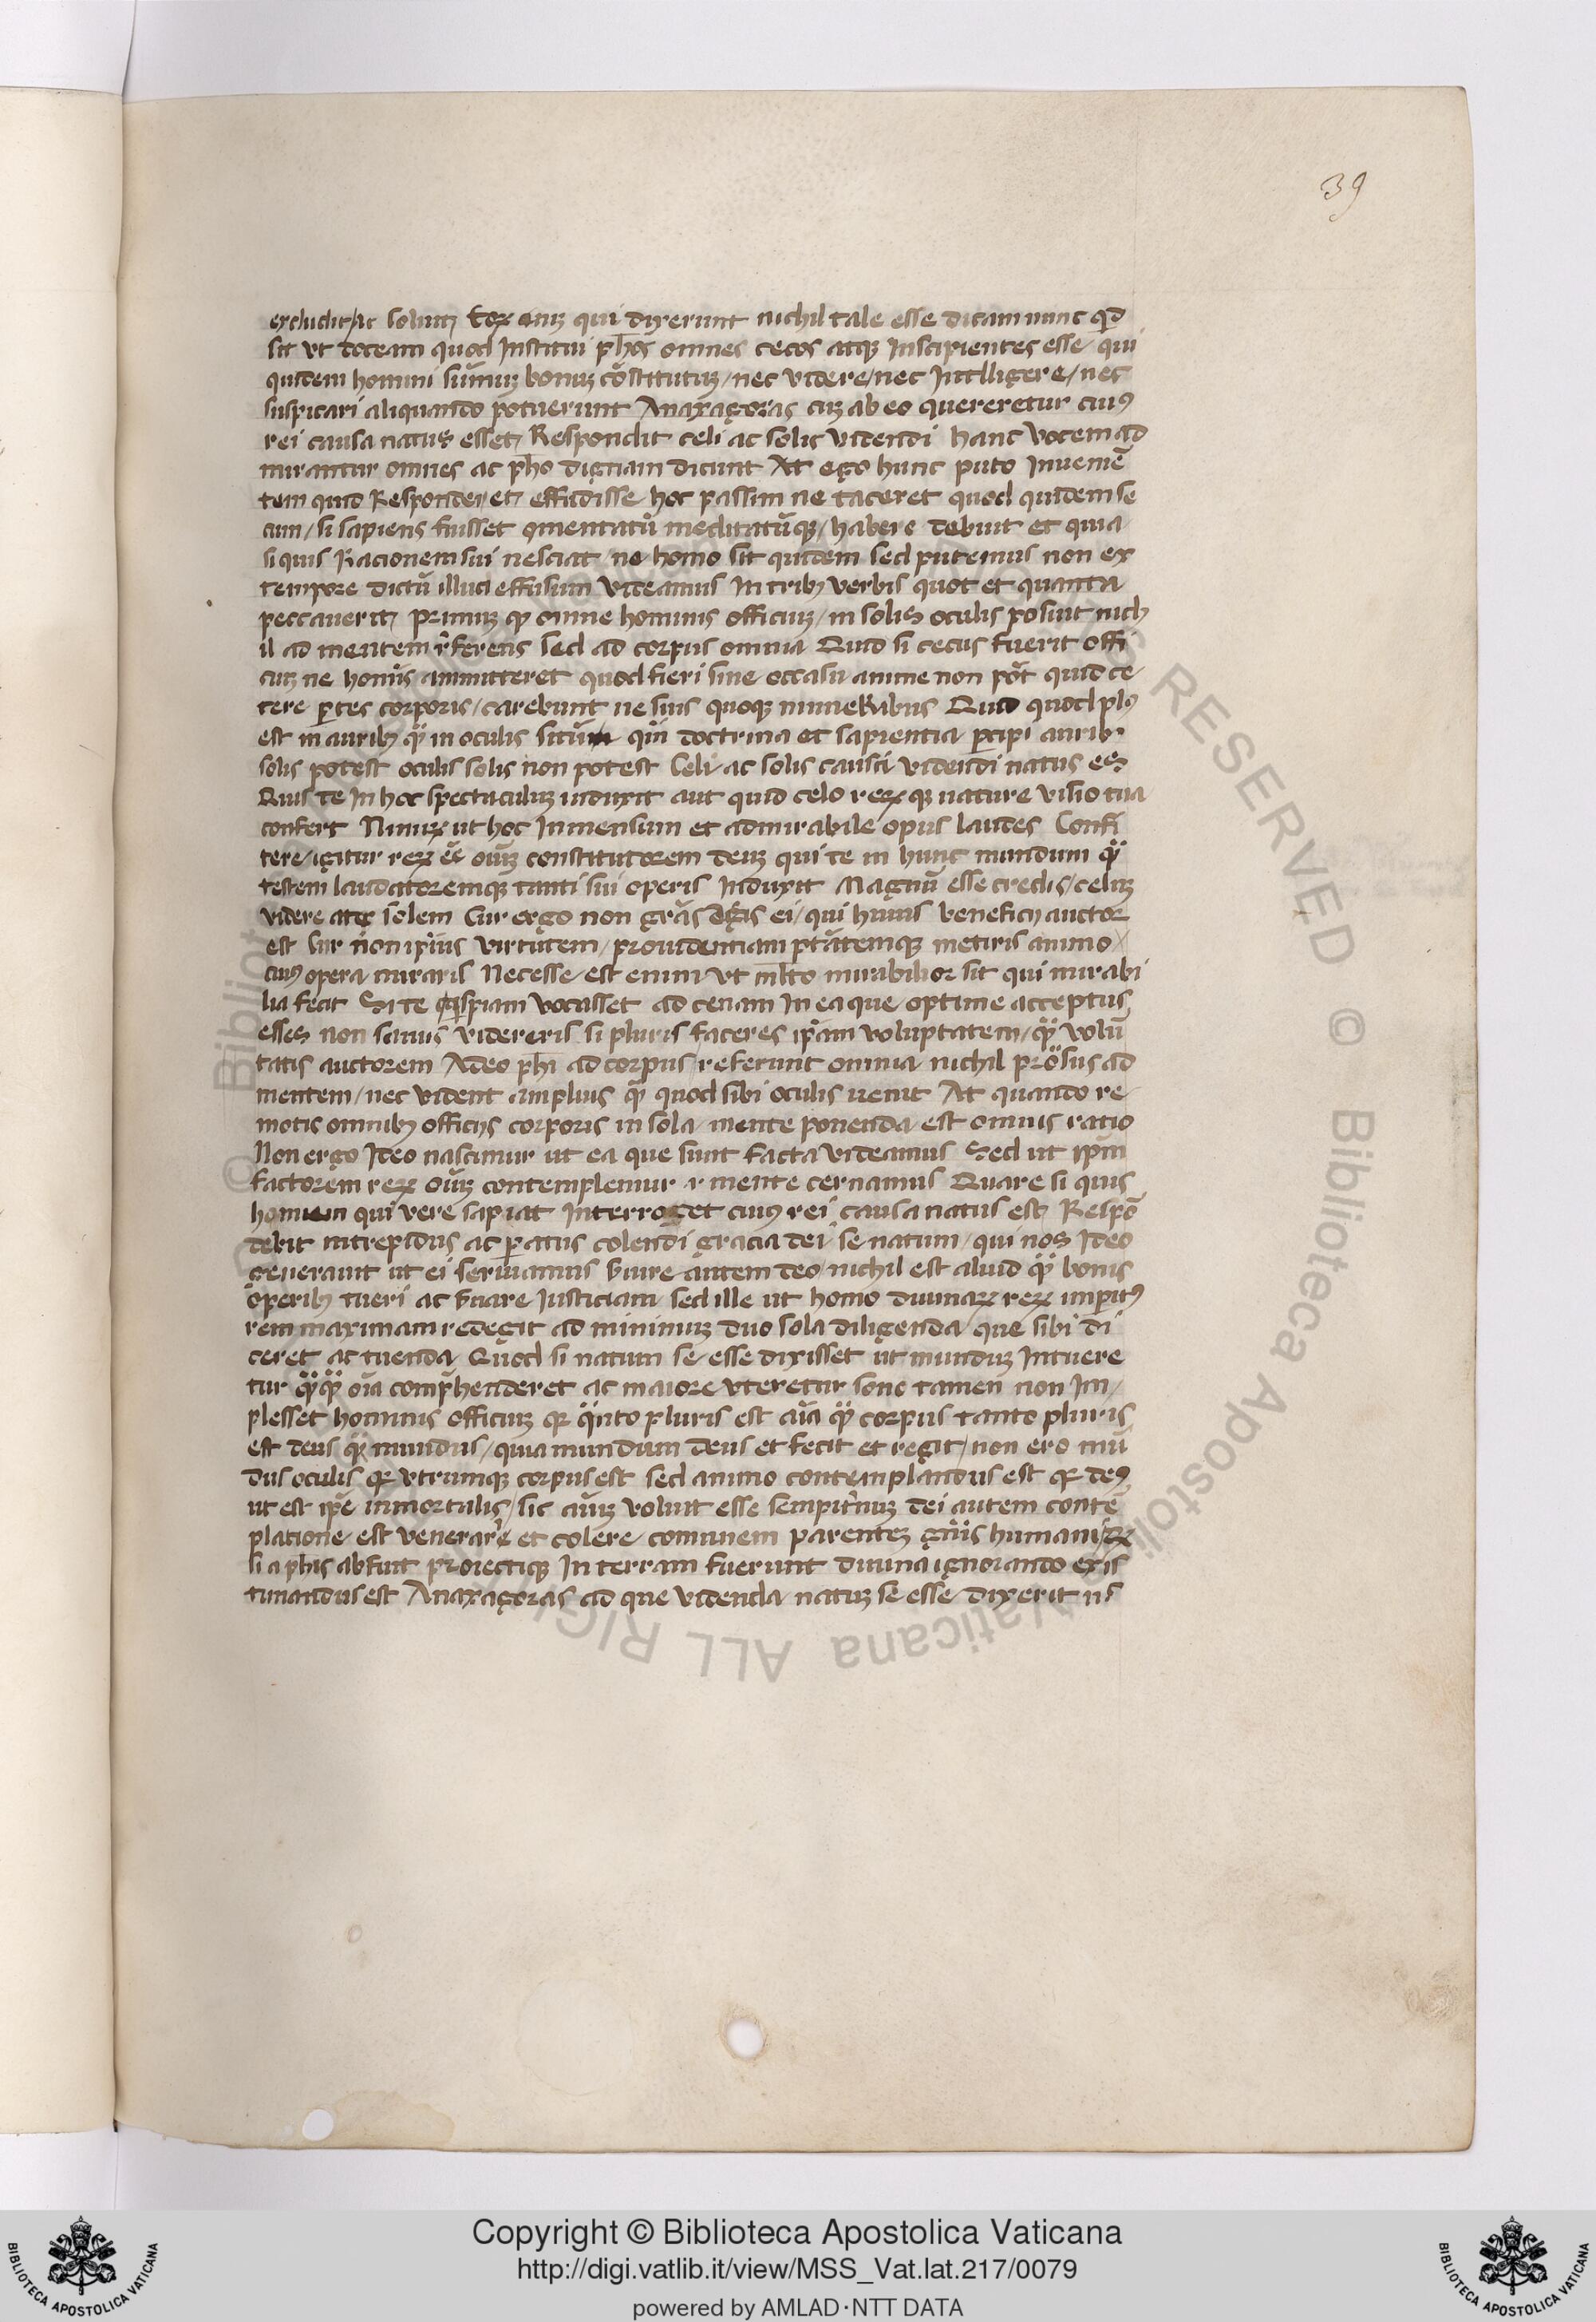 39
excludit/ac soluit eoꝝ enīꝫ qui dixerunt nichil tale esse dicam nunc qd̄
sit vt doceam quod Institui ph̄os omnes cecos atqꝫ Inscipientes esse qui
quidem homini sūmuꝫ bonuꝫ cōstitutuꝫ/nec videre/nec Intlligere/nec
suspicari aliquando potuerunt Anaxagoras cuꝫ ab eo quereretur cuiꝰ
rei causa natus esset Respondit celi ac solis videndi hanc vocem ad
mirantur omnes ac ph̄o dignam dicunt At ego hunc puto Inueniē
tem quid Responderet effudisse hoc passim ne taceret quod quidem se
cum/si sapiens fuisset ꝯmentatū meditatūqꝫ/habere debuit et quia
si quis Racionem sui nesciat ne homo sit quidem sed putemus non ex
tempore dictū illud effusum videamus In tribꝫ verbis quot et quanta
peccauerit primuꝫ ꝙ omne hominis officiuꝫ/in solis oculis posiut nich
il ad mentem r̄ferens sed ad corpus omnia Quid si cecus fuerit offi
ciuꝫ ne homīs ammitteret quod fieri sine occasu anime non pōt quid ce
tere ꝑtes corporis/carebunt ne suis quoqꝫ muneribus Quid quod plꝰ
est in auribꝫ qͣ in oculis situm qm̄ doctrina et sapientia ꝑcipi auribꝫ
solis potest oculis solis non potest Celi ac solis causa videndi natus es
Quis te In hoc spectaculuꝫ induxit aut quid celo reꝝqꝫ nature visio tua
confert Nimiꝝ ut hoc Inmensum et admirabile opus laudes Confi
tere/igitur reꝝ ēē oīuꝫ constitutorem deuꝫ qui te in hunc mundum qͣ
testem laudatoremqꝫ tanti sui operis Induxit Magnū esse credis/celuꝫ
videre atqꝫ solem Cur ergo non grās agis ei/qui huius beneficij auctor
est Cur non ip̄ius virtutem/prouidentiam ptātemqꝫ metiris animo
cuiꝰ opera miraris Necesse est enim vt ml̄to mirabilior sit qui mirabi
lia fecit Si te qͥspiam vocasset ad cenam In ea que optime acceptus
esses non sanus videreris si pluris faceres ip̄am voluptatem/qͣ volū
tatis auctorem Adeo ph̄i ad corpus referunt omnia nichil prōsus ad
mentem/nec vident amplius qͣ quod sibi oculis uenit At quando re
motis omnibꝫ officijs corporis in sola mente ponenda est omnis ratio
Non ergo Ideo nascimur ut ea que sunt facta videamus Sed ut ip̄m
factorem reꝝ oīuꝫ contemplemur .i. mente cernamus Quare si quis
hominem qui vere sapiat Interroget cuiꝰ rei causa natus est Respō
debit intrepidus ac ꝑatus colendi gracia dei se natum/qui nos Ideo
generauit ut ei seruiamus s̄uire autem deo nichil est aliud qͣ bonis
operibꝫ tueri ac s̄uare Iusticiam sed ille ut homo diuinaꝝ reꝝ imꝑitꝰ
rem maximam redegit ad minimuꝫ duo sola diligenda que sibi di
ceret ac tuenda Quod si natum se esse dixisset ut munduꝫ Intuere
tur qͣqͣ oīa comp̄henderet ac maiore vteretur sono tamen non Im/
plesset hominis officiuꝫ qꝛ qͣnto pluris est aīa qͣ corpus tanto pluris
est deus qͣ mundus/quia mundum deus et fecit et regit/non ero mū
dus oculis qꝛ vtrumqꝫ corpus est sed animo contemplandus est qꝛ deꝰ
ut est ip̄e inmortalis/sic aīuꝫ voluit esse sempit̄nuꝫ dei autem contē
platione est venerari et colere comunem parenteꝫ gn̄is humani qꝛ
si a ph̄is abfuit proiectiqꝫ In terram fuerunt diuina ignorando exis
timandus est Anaxagoras ad que videnda natuꝫ se esse dixerit us
Copyright © Biblioteca Apostolica Vaticana
http://digi.vatlib.it/view/MSS_Vat.lat.217/0079
powered by AMLAD·NTT DATA
BIBLIOTECA APOSTOLICA VATICANA
BIBLIOTECA APOSTOLICA VATICANA
© Biblioteca Apostolica Vaticana ALL RIGHTS RESERVED